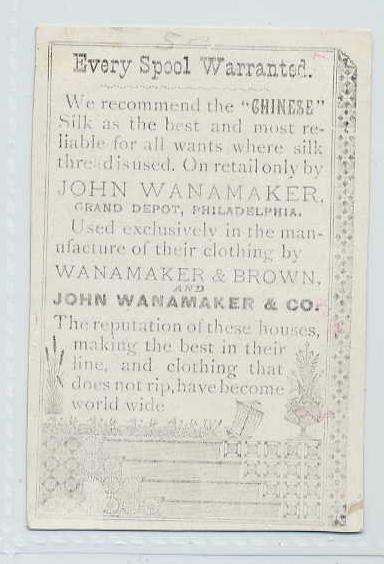 5
Every Spool Warranted.
We recommend the "CHINESE"
Silk as the best and most re-
liable for all wants where silk
thread is used. On retail only by
JOHN WANAMAKER,
GRAND DEPOT, PHILADELPHIA.
Used exclusively in the man-
ufacture of their clothing by
WANAMAKER & BROWN,
AND
JOHN WANAMAKER & CO.
The reputation of these houses,
making the best in their
line, and clothing that
does not rip, have become
world wide